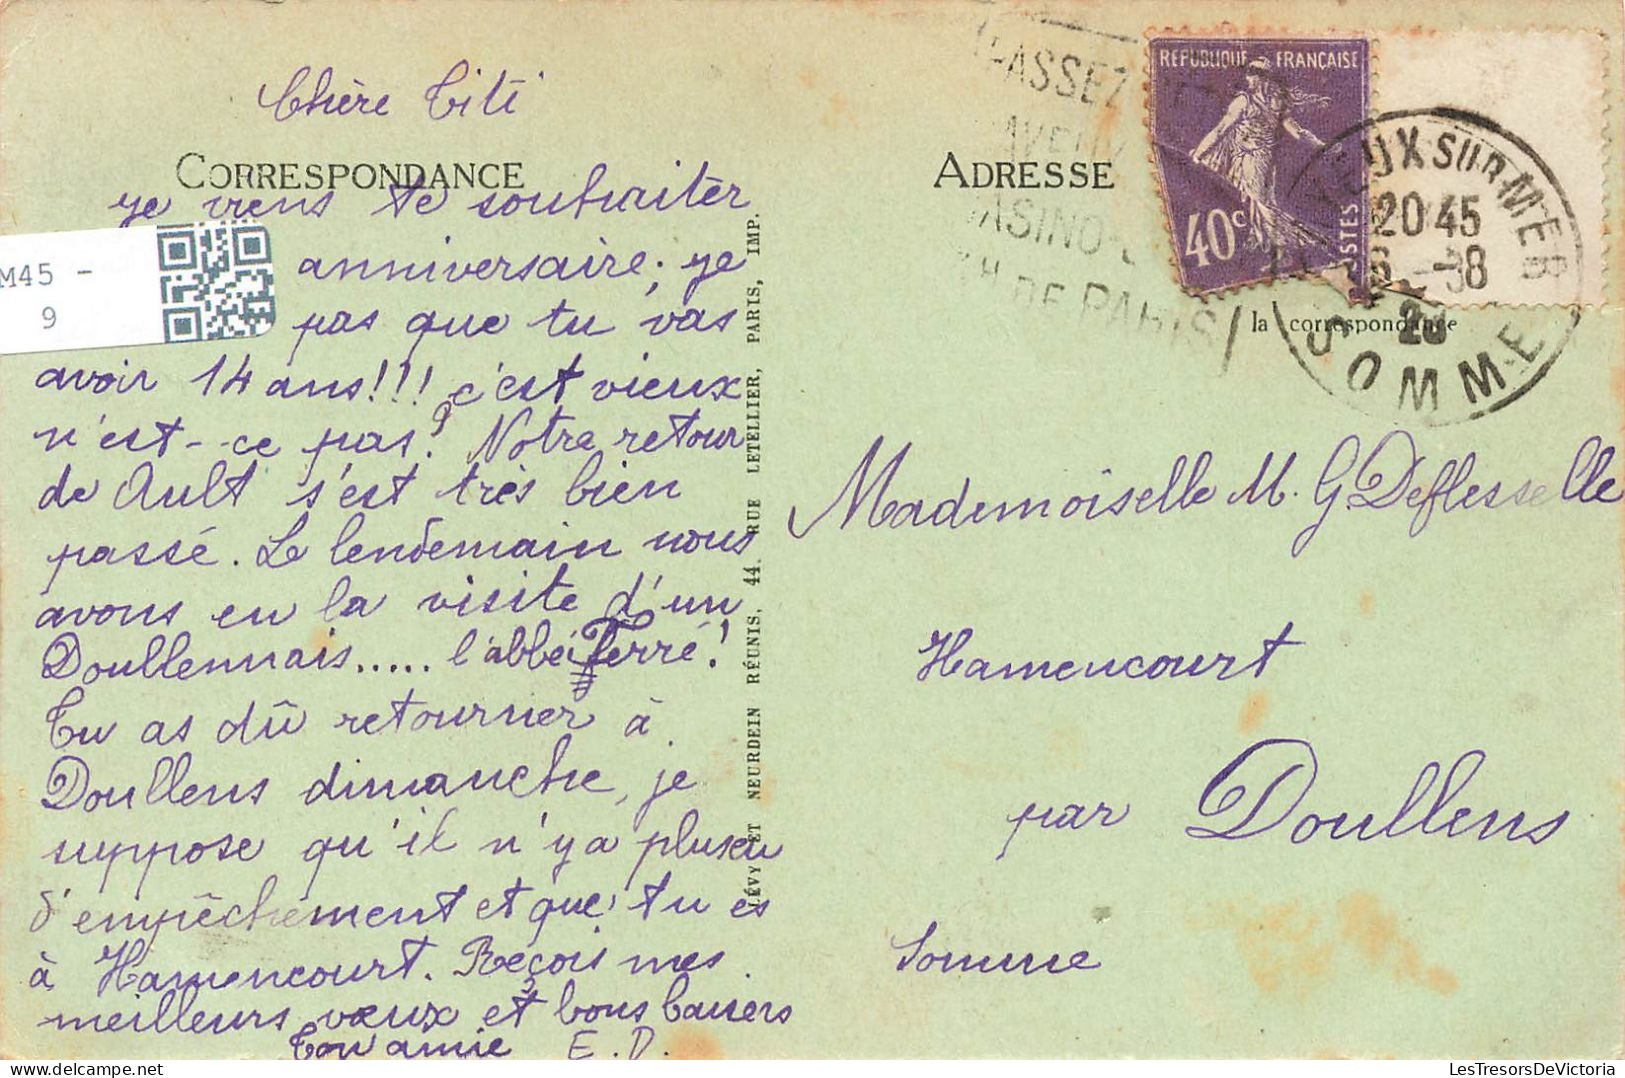 Chère Titi
CORRESPONDANCE
je viens te souhaiter
anniversaire. je
pas que tu vas
avoir 14 ans!!! c'est vieux
n'est-ce pas? Notre retour
de Ault s'est très bien
passé. Le lendemain nous
avons eu la visite d'un
Doullennais..... l'abbé Ferré!
Tu as dû retourner à
Doullens dimanche, je
suppose qu'il n'y a plus eu
d'empêchement et que tu es
à Hamencourt. Reçois mes
meilleurs vœux et bons baisers
Ton amie E.D.
M45 -
9
LÉVY ET NEURDEIN RÉUNIS, 44, RUE LETELLIER, PARIS, IMP.
ADRESSE
RÉPUBLIQUE FRANÇAISE
40c
POSTES
PASSEZ
CASINO
DE PARIS
SUR-MER
20 45
6 -8
SOMME
la correspondance
Mademoiselle M. G. Deflesselle
Hamencourt
par Doullens
Somme
LesTresorsDeVictoria